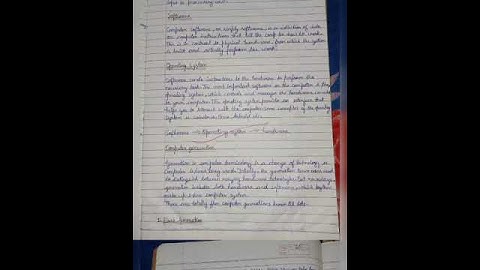 Software
Computer software, or simply software, is a collection of data
or computer instructions that tell the computer how to work.
This is in contrast to physical hardware, from which the system
is built and actually performs the work.
Operating System
Software sends instructions to the hardware to perform the
necessary task. The most important software in the computer is the
operating system, which controls and manages the hardware connected
to your computer. The operating system provides an interface that
helps you to interact with the computer. Some examples of the operating
system is windows, Linux, Android etc.
Software → Operating system → hardware
Computer generation
Generation in computer terminology is a change of technology a
computer is/was being used. Initially, the generation term was used
to distinguish between varying hardware technologies. But nowadays,
generation includes both hardware and software, which together
make up entire computer system.
There are totally five computer generations known till date.
1. First Generation